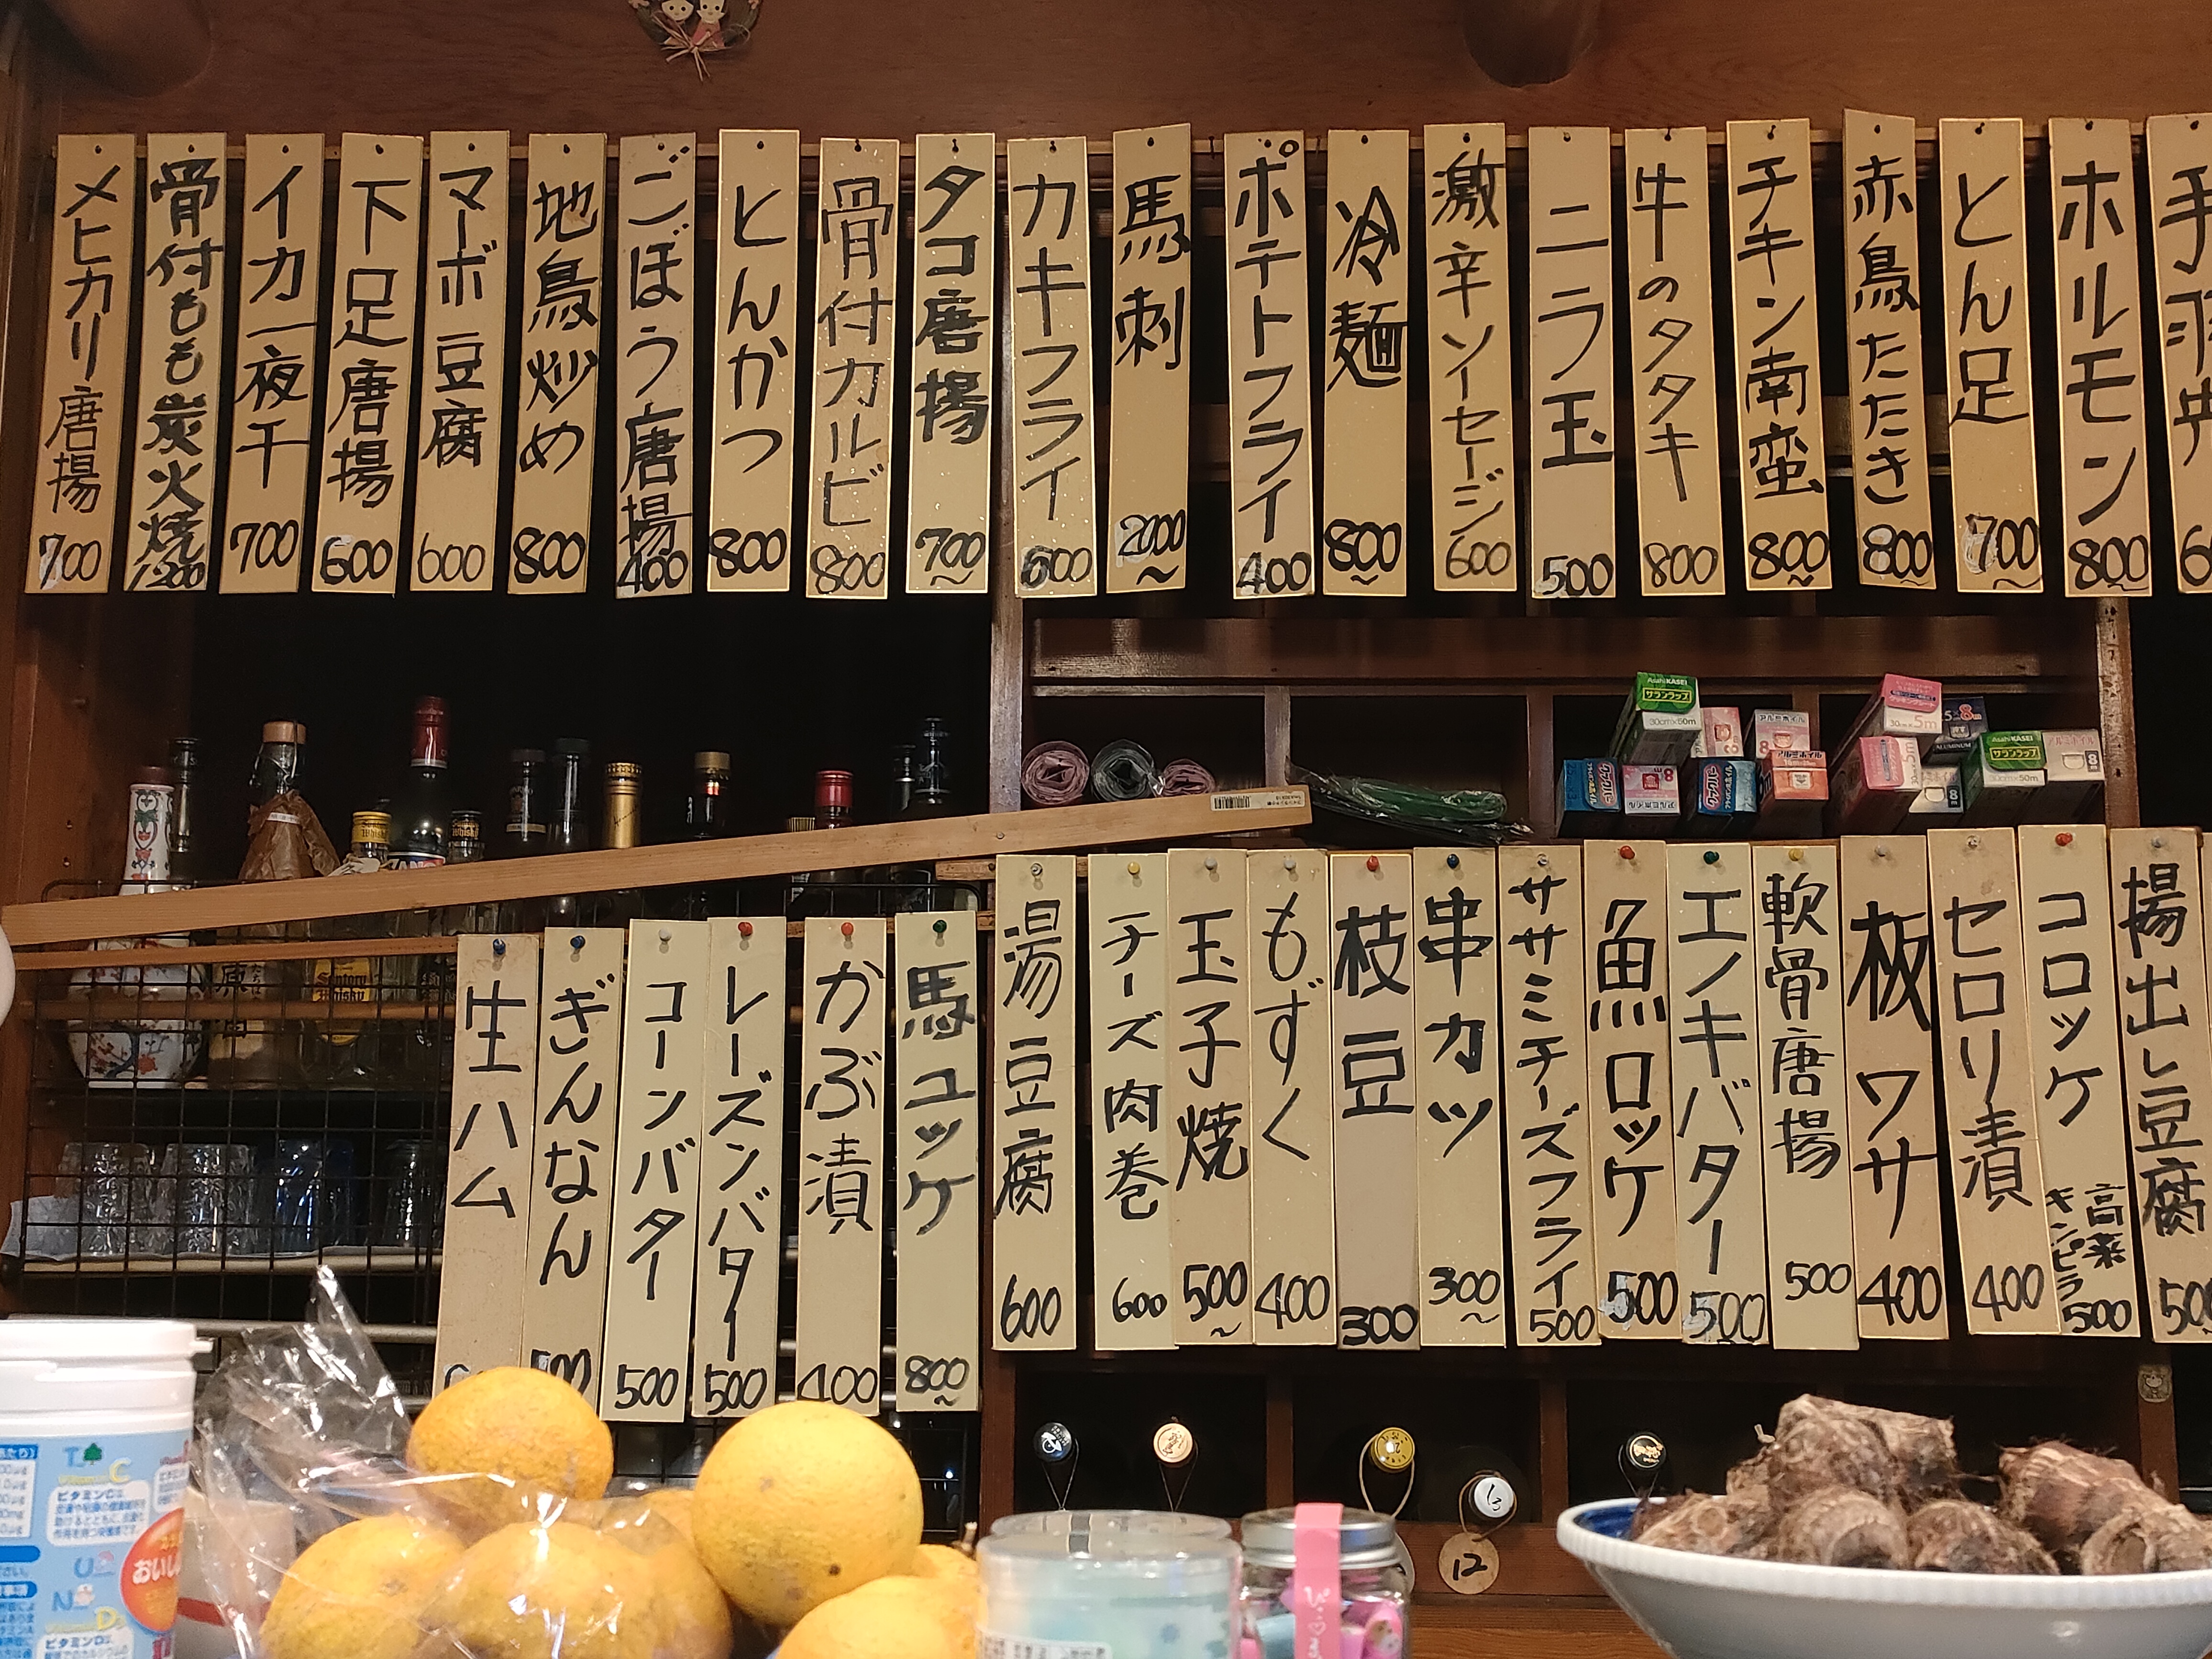 メヒカリ唐揚 700
骨付もも炭火焼 1200
イカ一夜干 700
下足唐揚 600
マーボ豆腐 600
地鳥炒め 800
ごぼう唐揚 400
とんかつ 800
骨付カルビ 800
タコ唐揚 700〜
カキフライ 600
馬刺 2000〜
ポテトフライ 400
冷麺 800〜
激辛ソーセージ 600
ニラ玉 500
牛のタタキ 800
チキン南蛮 800〜
赤鳥たたき 800〜
とん足 700〜
ホルモン 800〜
手羽
生ハム
ぎんなん 500
コーンバター 500
レーズンバター 500
かぶ漬 400
馬ユッケ 800〜
湯豆腐 600
チーズ肉巻 600
玉子焼 500〜
もずく 400
枝豆 300
串カツ 300〜
ササミチーズフライ 500
魚ロッケ 500
エノキバター 500
軟骨唐揚 500
板ワサ 400
セロリ漬 400
コロッケ 高菜 キンピラ 500
揚出し豆腐
AsahiKASEI
サランラップ
30cm×50m
アルミホイル
AsahiKASEI
サランラップ
30cm×50m
アルミホイル
8m
Suntory
Whisky
ビタミンC
ビタミンD
おいし
12